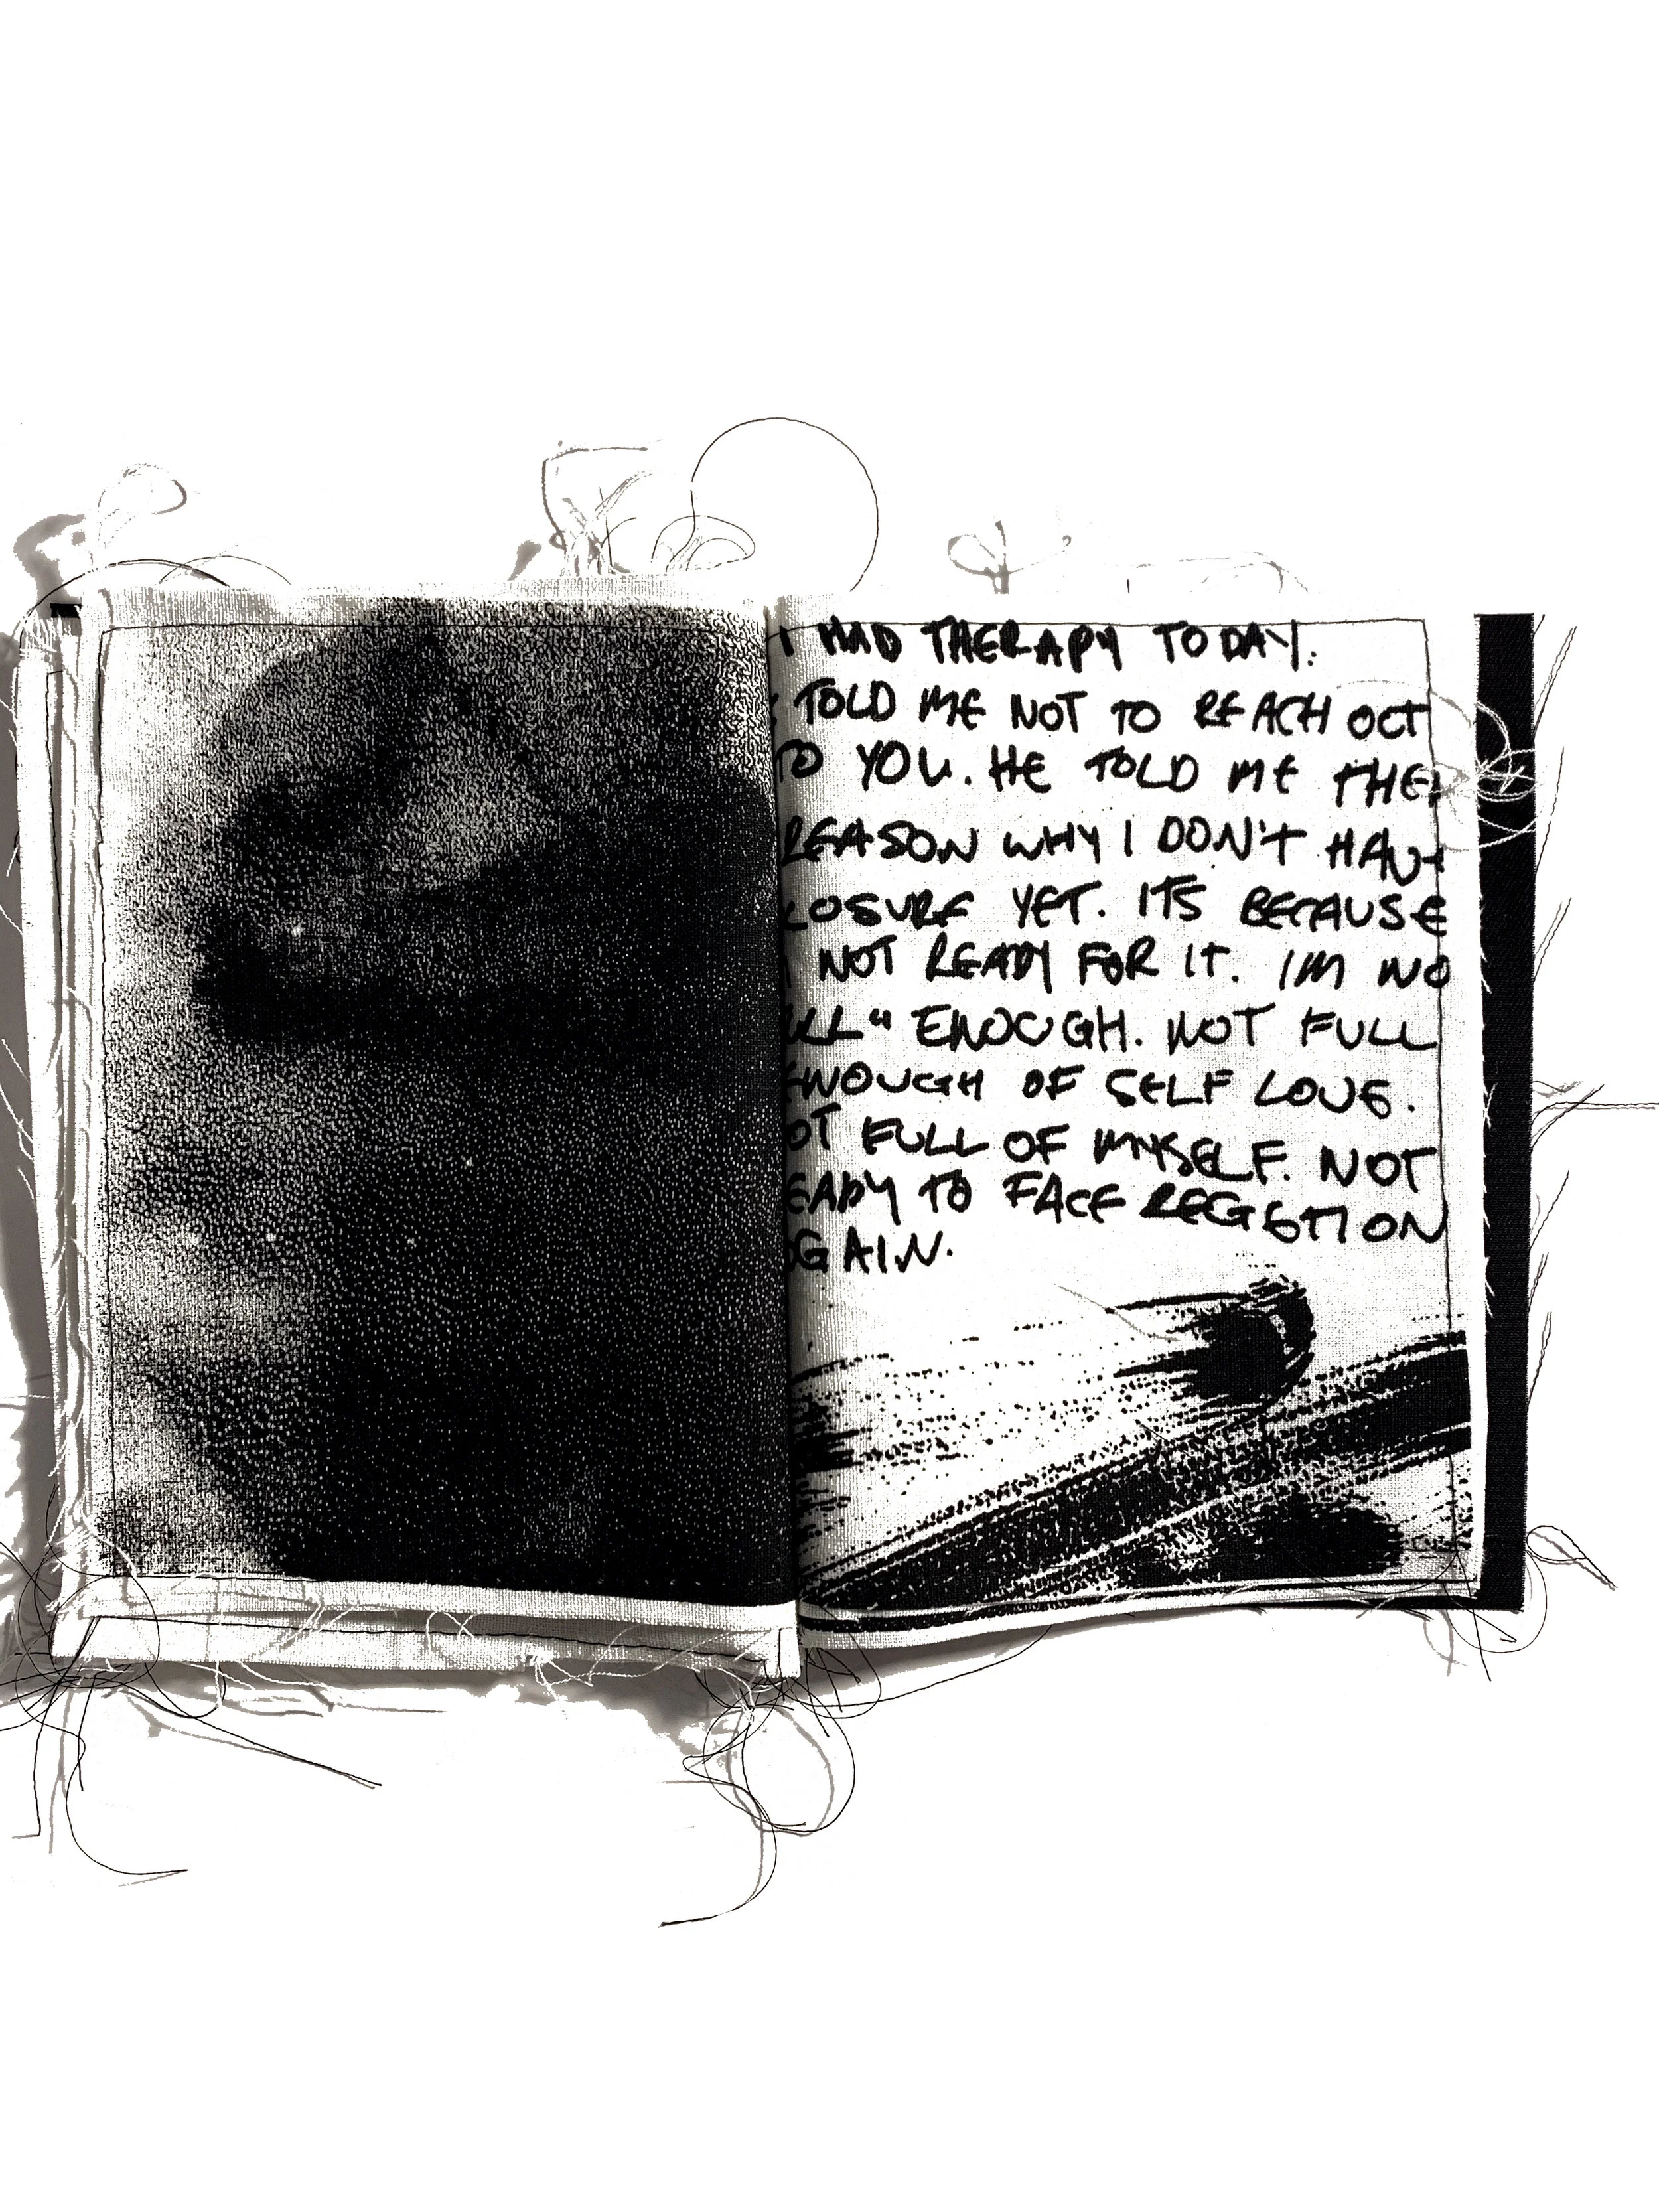 I HAD THERAPY TODAY.
TOLD ME NOT TO REACH OUT
TO YOU. HE TOLD ME THE
REASON WHY I DON'T HAVE
LOSURE YET. ITS BECAUSE
NOT READY FOR IT. IM NO
ULL" ENOUGH. NOT FULL
ENOUGH OF SELF LOVE.
OT FULL OF MYSELF. NOT
EADY TO FACE REGETION
AGAIN.